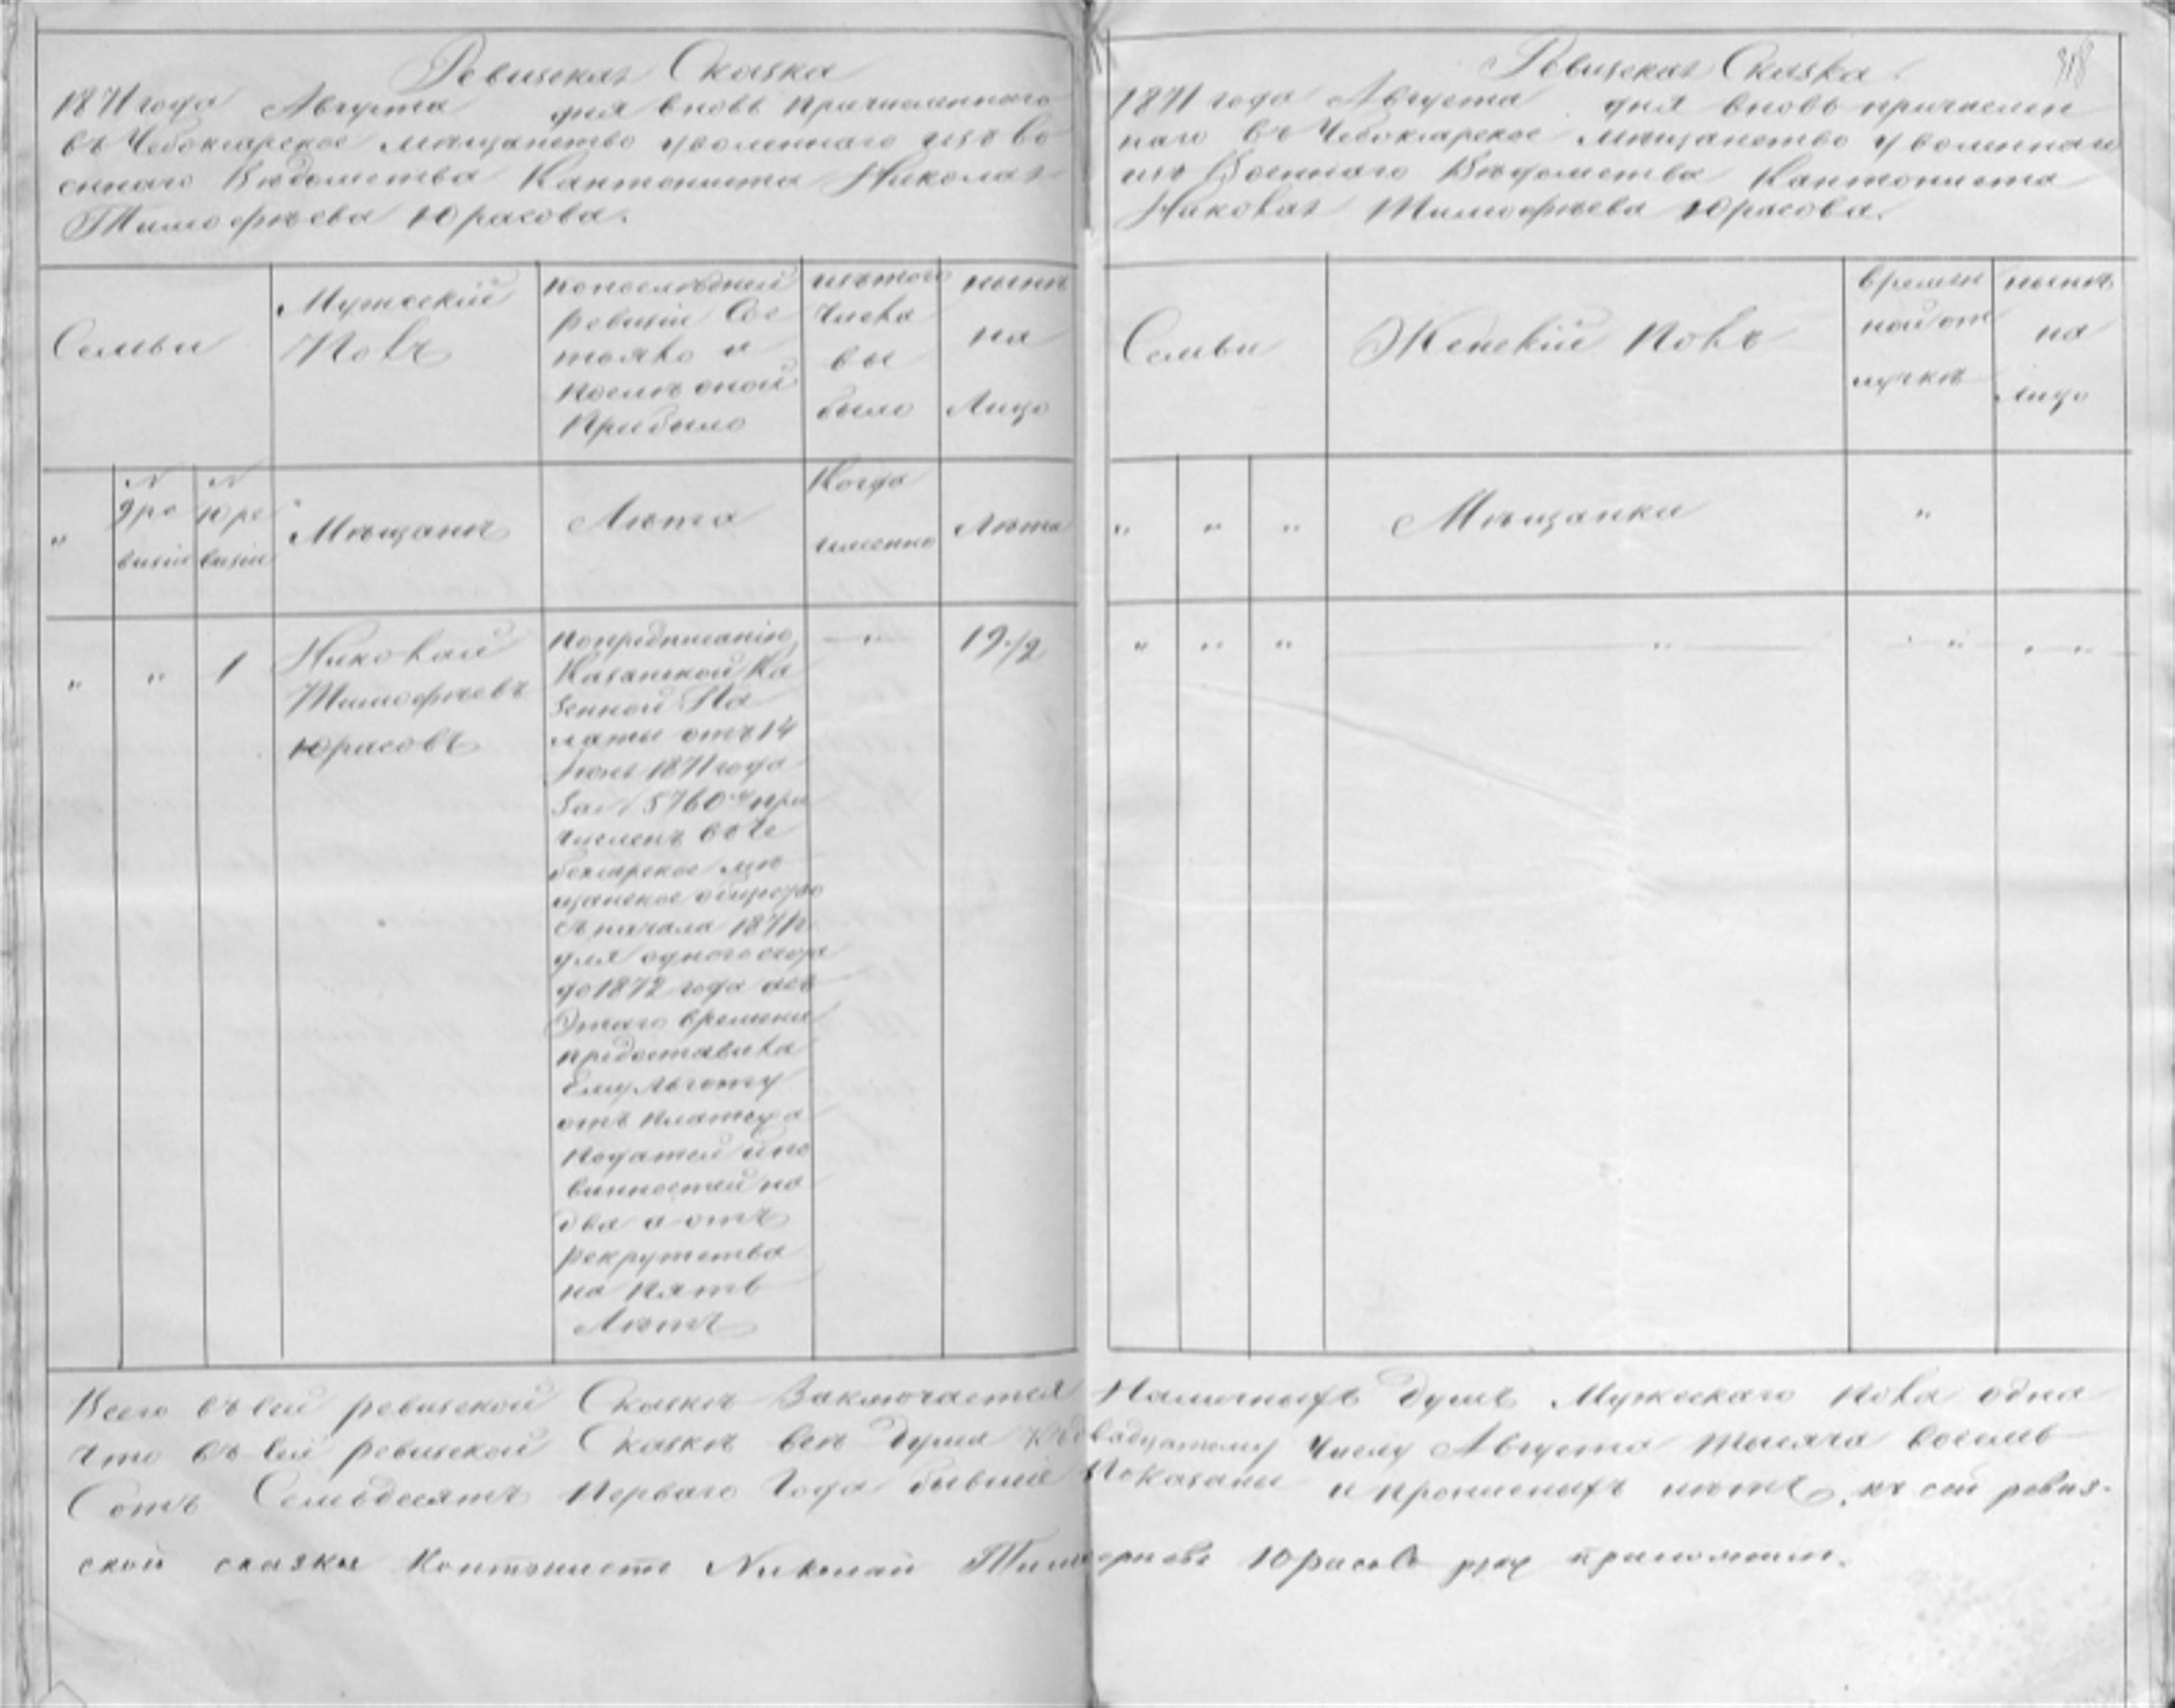 Ревизская Сказка
1871 года Августа дня вновь причисленнаго
въ Чебоксарское мещанство уволеннаго изъ во
еннаго Вѣдомства Кантониста Николая
Тимофѣева Юрасова.
Семьи
Мужескій
Полъ
по последней
ревизіи Сос
тояло и
послѣ оной
Прибыло
изъ того
числа
вы
было
нынѣ
на
Лицо
"
№
9 ре
визіи
№
10 ре
визіи
Мѣщанѣ
Лѣта
Когда
именно
Лѣта
"
"
1
Николай
Тимофѣевъ
Юрасовъ
по предписанію
Казанской Ка
зенной Па
латы отъ 14
Іюня 1871 года
за № 5760 при
численъ въ Че
боксарское мѣ
щанское общество
съ начала 1871 г.
для одного оклада
до 1872 года
Этаго времени
предоставила
Ему льготу
отъ платежа
податей и по
винностей на
два а отъ
рекрутства
на пять
Лѣтъ
"
19 1/2
Ревизская Сказка.
318
1871 года Августа дня вновь причислен
наго въ Чебоксарское мещанство уволеннаго
изъ Военнаго Вѣдомства Кантониста
Николая Тимофѣева Юрасова.
Семьи
Женскій Полъ
времен
ной от
лучкѣ
нынѣ
на
лицо
" " " Мѣщанки "
" " " " " "
Всего въ сей ревизской Сказкѣ Заключается Наличныхъ душъ Мужескаго пола одна
что въ сей ревизской Сказкѣ всѣ души Къ двадцатому Числу Августа тысяча восемь
Сотъ Семьдесятъ Перваго Года бывшіе Показаны и прописныхъ нѣтъ, къ сей ревиз-
ской сказки Контонистъ Николай Тимофѣевъ Юрасовъ руку приложилъ.